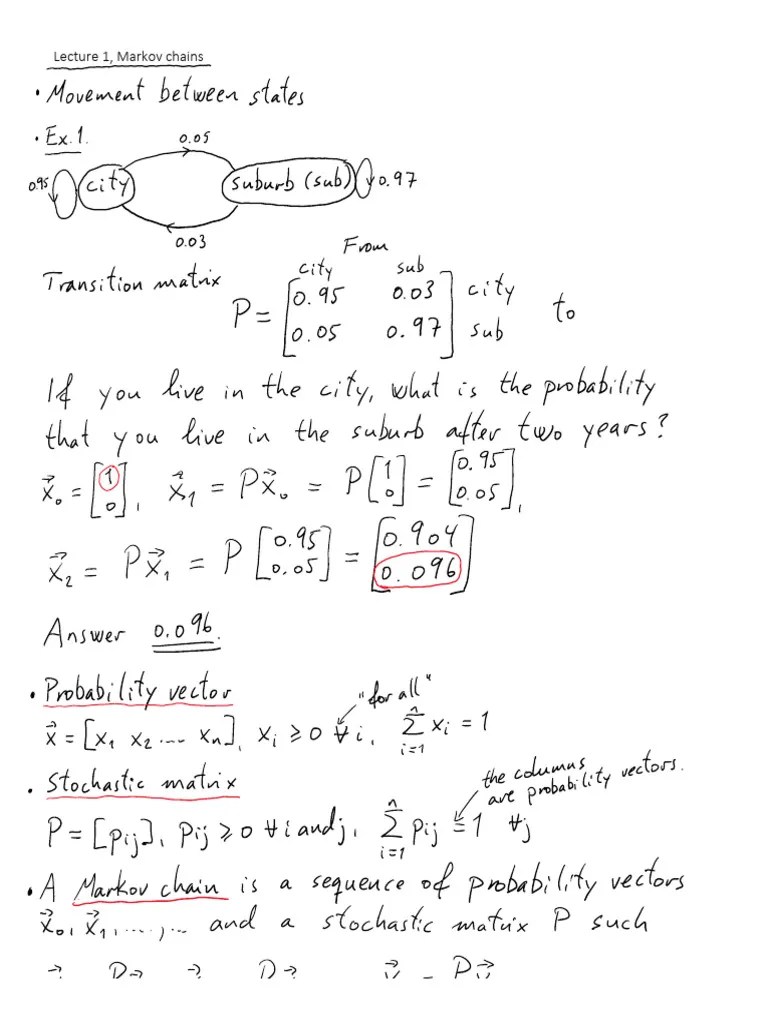 Lecture 1, Markov chains
• Movement between states
• Ex.1.
0.05
0.95 city suburb (sub) 0.97
0.03
From
city sub
Transition matrix P = [0.95 0.03] city
[0.05 0.97] sub to
If you live in the city, what is the probability
that you live in the suburb after two years?
x⃗₀ = [1 0], x⃗₁ = Px⃗₀ = P[1 0] = [0.95 0.05],
x⃗₂ = Px⃗₁ = P[0.95 0.05] = [0.904 0.096]
Answer 0.096.
• Probability vector "for all"
x⃗ = [x₁ x₂ .... xₙ], xᵢ ≥ 0 ∀ i, ∑ᵢ₌₁ⁿ xᵢ = 1
• Stochastic matrix the columns
are probability vectors.
P = [pᵢⱼ], pᵢⱼ ≥ 0 ∀ i and j, ∑ᵢ₌₁ⁿ pᵢⱼ = 1 ∀j
• A Markov chain is a sequence of probability vectors
x⃗₀, x⃗₁, ...., ... and a stochastic matrix P such